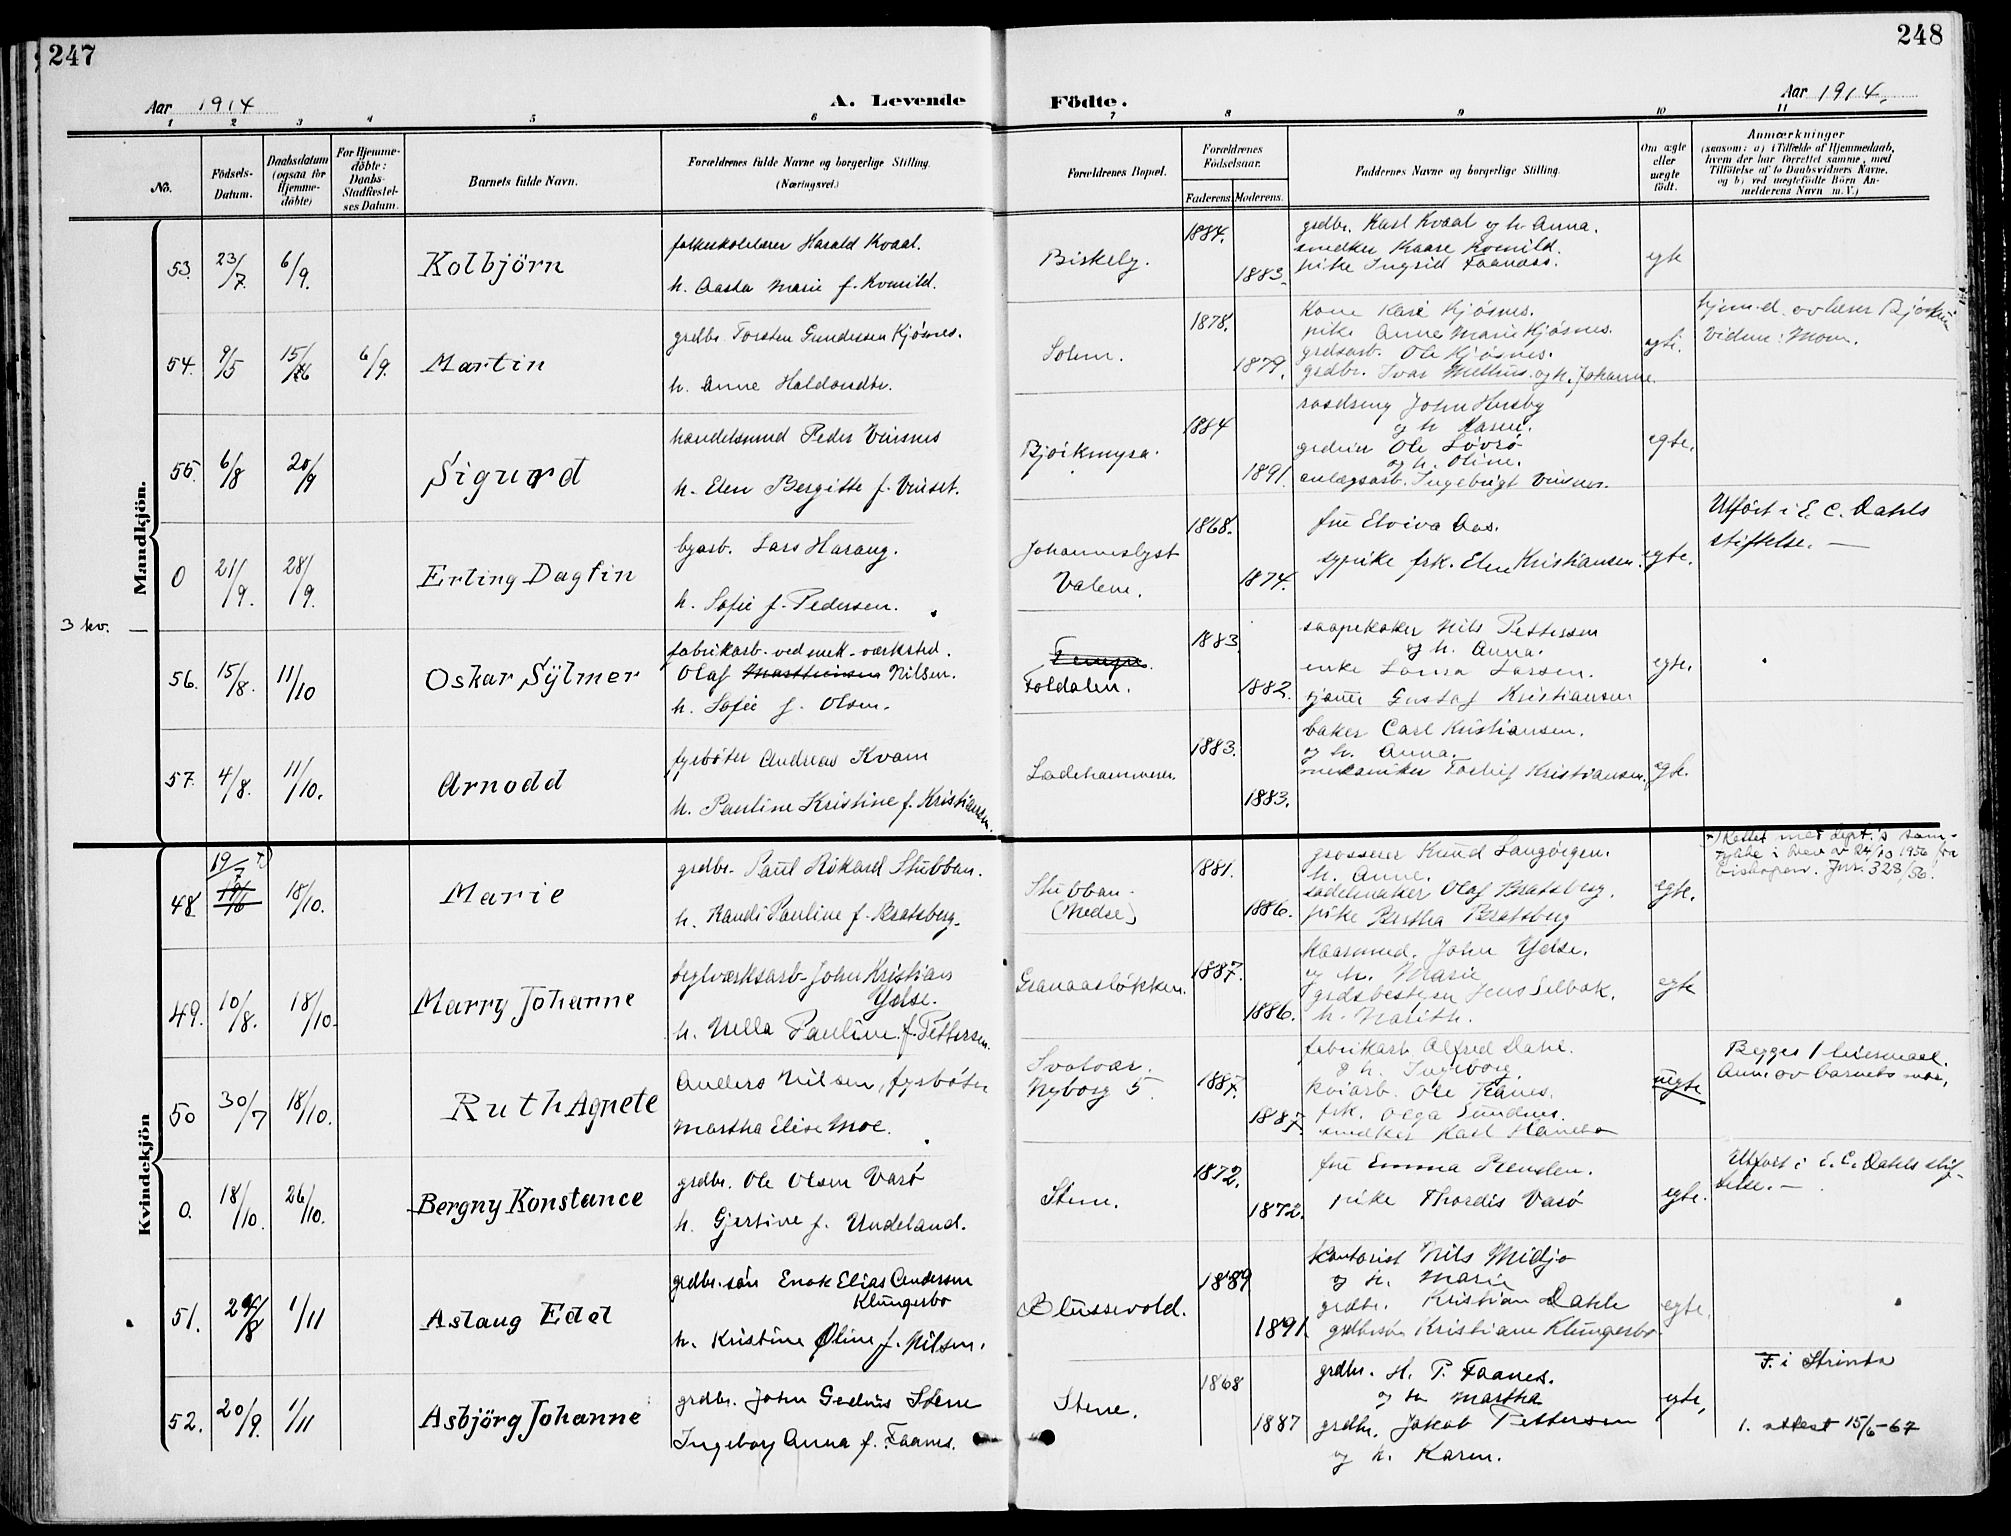 247
248
Aar 1914
A. Levende
Födte.
Aar 1914.
1 2 3 4 5 6 7 8 9 10 11
No.
Födsels-
Datum.
Daabsdatum
(ogsaa for
Hjemme-
döbte)
For Hjemme-
döbte:
Daabs-
Stadfæstel-
ses Datum.
Barnets fulde Navn.
Forældrenes fulde Navne og borgerlige Stilling.
(Næringsvei.)
Forældrenes Bopæl.
Forældrenes
Födselsaar.
Faderens
Moderens.
Faddernes Navne og borgerlige Stilling.
Om ægte
eller
uægte
födt.
Anmærkninger
(saasom: a) i Tilfælde af Hjemmedaab,
hvem der har forrettet samme, med
Tilföielse af to Daabsvidners Navne,
og b) ved uægtefödte Börn An-
melderens Navn m. V.)
Mandkjön.
53. 23/7. 6/9. Kolbjörn
folkeskolelærer Harald Kvaal.
h. Aasta Marie f. Kvenild.
Biskeby.
1884.
1883.
grdbr. Karl Kvaal og h. Anna.
snedker Kaare Kvenild.
pike Ingrid Faanæss.
egte
54. 9/5 15/6 6/9. Martin
grdbr. Torsten Gundersen Kjösnes.
h. Anne Haldorsdtr.
Solem.
1878.
1879.
Kone Kari Kjøsnes.
pike Anne Marie Kjøsnes.
grdsarb. Ole Kjøsnes.
grdbr. Ivar Melhus og h. Johanne.
egte.
hjem.d. av lærer
Vidne: Mom.
55. 6/8 20/9 Sigurd
handelsmnd Peder Vinsnes
h. Elen Bergitte f. Vinset.
Bjørkmyra.
1884
1891.
John Husby
og h. Karen.
Ole Løvrø
og h. Oline.
anlægsarb. Ingebrigt Vinsnes.
egte.
0 21/9. 28/9. Erling Dagfin
byarb. Lars Haraug.
h. Sofie f. Pedersen.
Johanneslyst
Valene.
1868.
1874.
frue Elvira Aas.
sypike frk. Elen Kristiansen.
egte.
Utført i E. C. Dahls
stiftelse. —
3 kv. —
56. 15/8. 11/10 Oskar Sylmer
fabrikarb. ved mek. værksted.
Olaf Marthinsen Nilsen.
h. Sofie f. Olsen.
Foldalen.
1883
1882.
saapekoker Nils Pettersen
og h. Anna.
enke Lovisa Larsen.
Gustaf Kristiansen
egte.
57. 4/8. 11/10. Arnodd
fyrbøter Andreas Kvam
h. Pauline Kristine f. Kristiansen.
Ladehammeren.
1883.
1883.
baker Carl Kristiansen.
og h. Anna.
mekaniker Torleif Kristiansen.
egte.
Kvindekjön
48. 19/7 18/10. Marie
grdbr. Paul Rikard Stubban.
h. Randi Pauline f. Bratsberg.
Stubban
(Nedre)
1881.
1886.
grosserer Knud Langörgen.
h. Anne.
sadelmaker Olaf Bratsberg.
pike Bertha Bratsberg
egte.
x) Rettet med dept.'s sam-
tykke i brev av 24/10 1956 fra
biskopen. Jnr. 328/56.
49. 10/8. 18/10. Marry Johanne
teglværksarb. John Kristian
Ydse.
h. Nella Pauline f. Pettersen.
Granaasløkken.
1887.
1886.
John Ydse.
og h. Marie
grdsbestyrer Jens Selbak.
h. Marith.
egte
50 30/7 18/10. Ruth Agnete
Anders Nilsen, fyrbøter
Martha Elise Moe.
Svolvær.
Nyborg 5.
1887.
1887.
fabrikarb. Alfred Dahl.
og h. Ingeborg.
Ole Fanes.
frk. Olga Sundnes.
snedker Karl Hanebo
uegte
Begges 1 leiermaal.
Anm. av barnets mor.
0. 18/10. 26/10. Bergny Konstance
grdbr. Ole Olsen Varø
h. Gjertine f. Undeland.
Stene.
1872.
1872.
frue Emma Svendsen.
pike Thordis Varø
egte.
Utført i E. C. Dahls stif-
telse. —
51. 29/8 1/11 Aslaug Edel
grdbr. søn Enok Elias Andersen
Klungerbo
h. Kristine Oline f. Nilsen.
Blussevold.
1889
1891.
kontorist Nils Midjo
og h. Marie
grdbr. Kristian Dahle
Kristiane Klungerbo.
egte.
52. 20/9. 1/11 Asbjörg Johanne
grdbr. John Gedius Stene
Ingeborg Anna f. Faanes.
Stene.
1868
1887
grdbr. H. P. Faanes.
og h. Martha
grdbr. Jakob Pettersen
og h. Karen.
egte,
F. i Strinda
1. attest 15/6-67